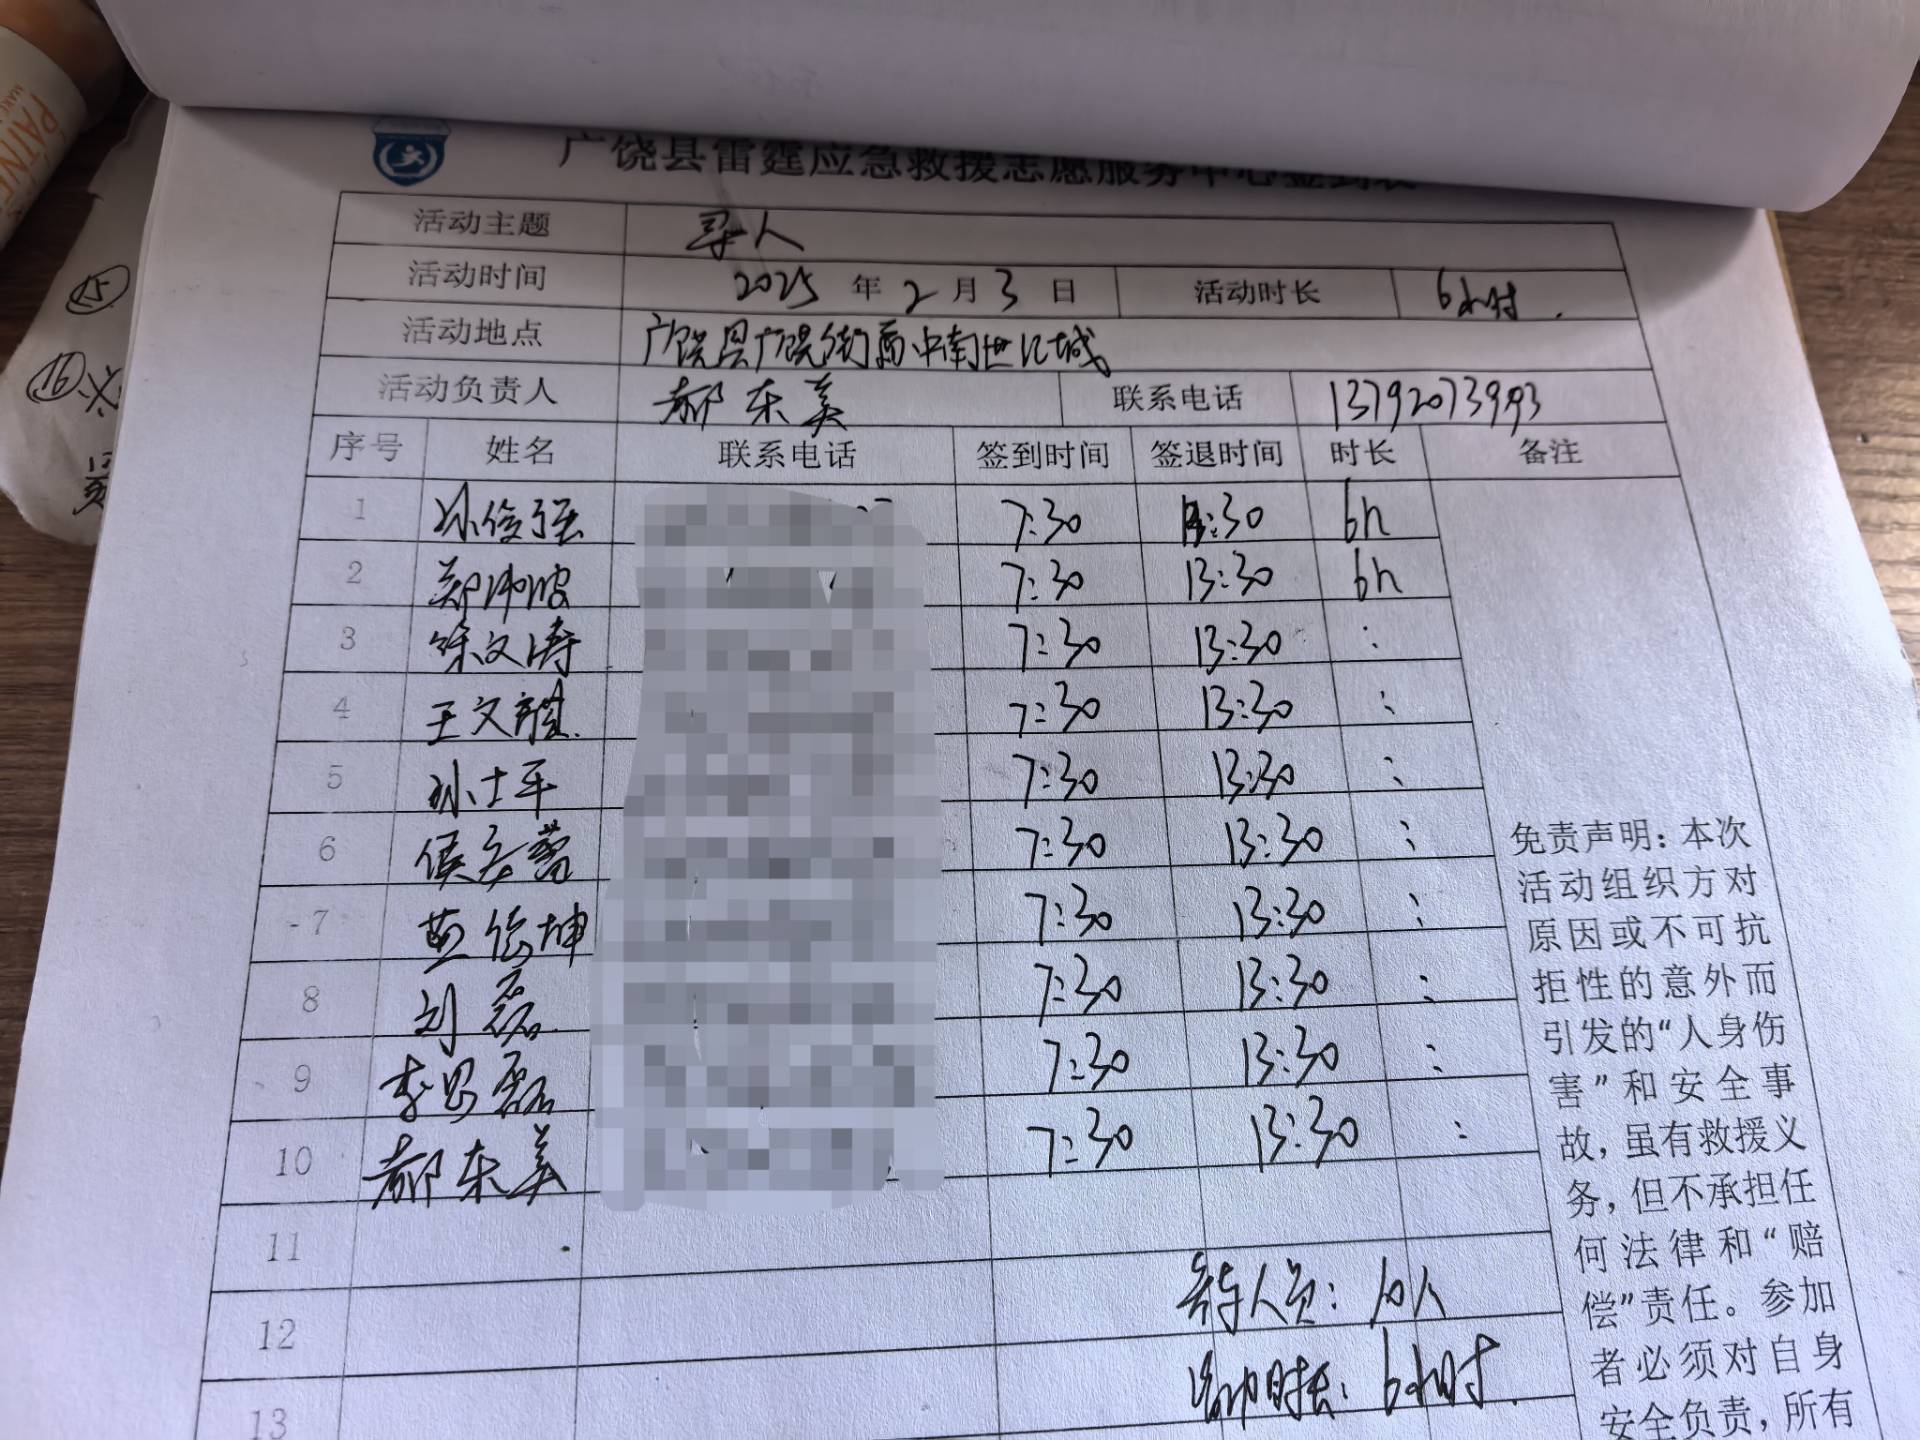 广饶县雷霆应急救援志愿服务中心签到表
活动主题 寻人
活动时间 2025年2月3日 活动时长 6小时.
活动地点 广饶县广饶街道中南世纪城
活动负责人 郝东美 联系电话 13792073993
序号 姓名 联系电话 签到时间 签退时间 时长 备注
1 孙俊强 7:30 13:30 6h
2 郑沛波 7:30 13:30 6h
3 徐文涛 7:30 13:30 :
4 王文 7:30 13:30 :
5 孙士平 7:30 13:30 :
6 侯 蕾 7:30 13:30 :
7 坤 7:30 13:30 :
8 刘磊 7:30 13:30 :
9 李思磊 7:30 13:30 :
10 郝东美 7:30 13:30 :
11
12
13
人员: 10人
时长: 6小时
免责声明:本次
活动组织方对
原因或不可抗
拒性的意外而
引发的“人身伤
害”和安全事
故,虽有救援义
务,但不承担任
何法律和“赔
偿”责任。参加
者必须对自身
安全负责,所有
15
16
PAINE